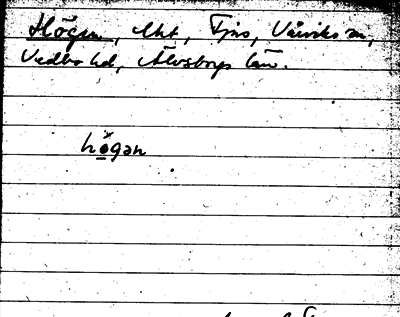 Högen, Mkt, Tjus, Vårviks sn,
Vedbo hd, Älvsborgs län.
högən